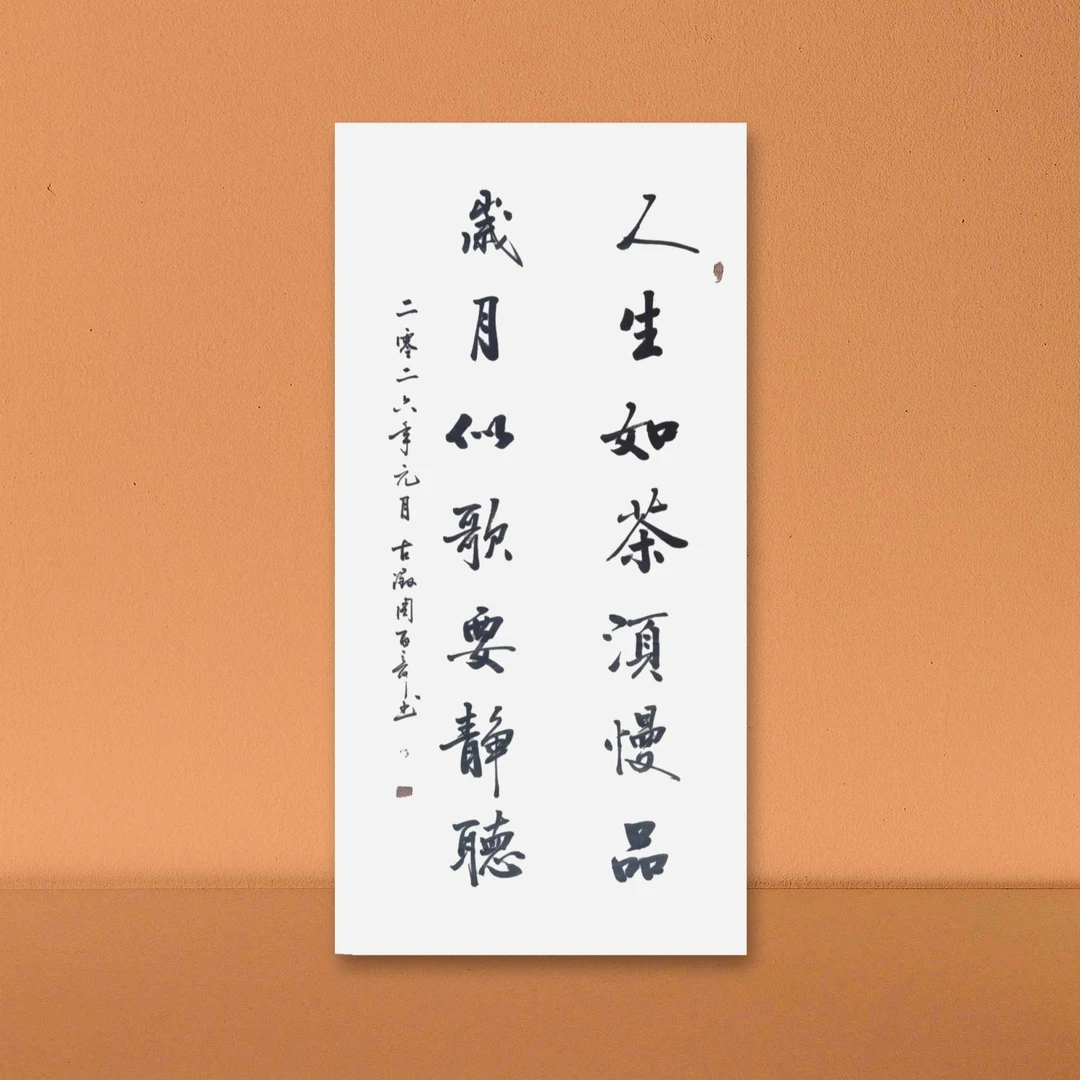 人生如茶須慢品
歲月似歌要静聽
二零二六年元月 古 周百 书